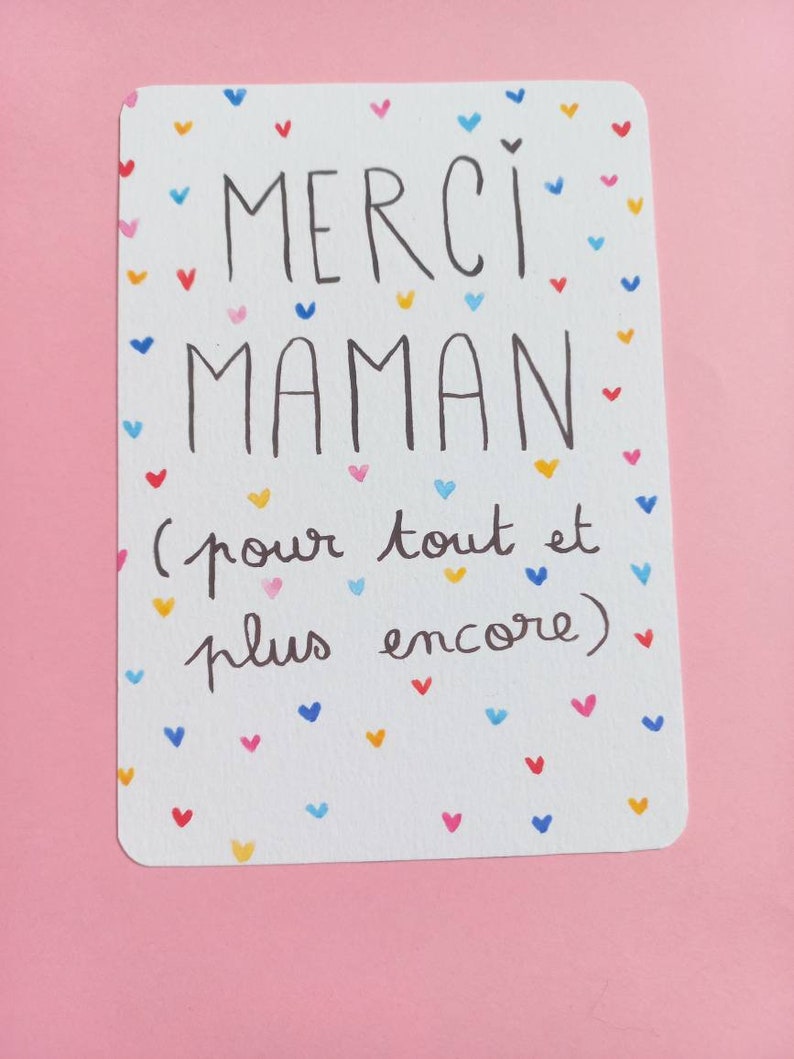 MERCi
MAMAN
(pour tout et
plus encore)